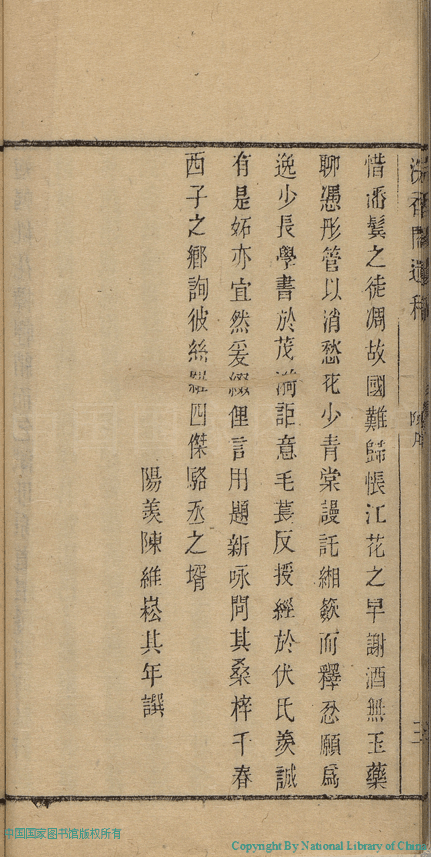 惜潘鬓之徒凋故國難歸悵江花之早謝酒無玉藥
聊憑彤管以消愁花少青棠謾託緗縑而釋忿願為
逸少長學書於茂漪詎意毛萇反授經於伏氏羡誠
有是妬亦宜然爰綴俚言用題新咏問其桑梓千春
西子之鄉詢彼絲蘿四傑駱丞之壻
陽羡陳維崧其年譔
遺稿
三
中国国家图书馆版权所有
Copyright By National Library of China